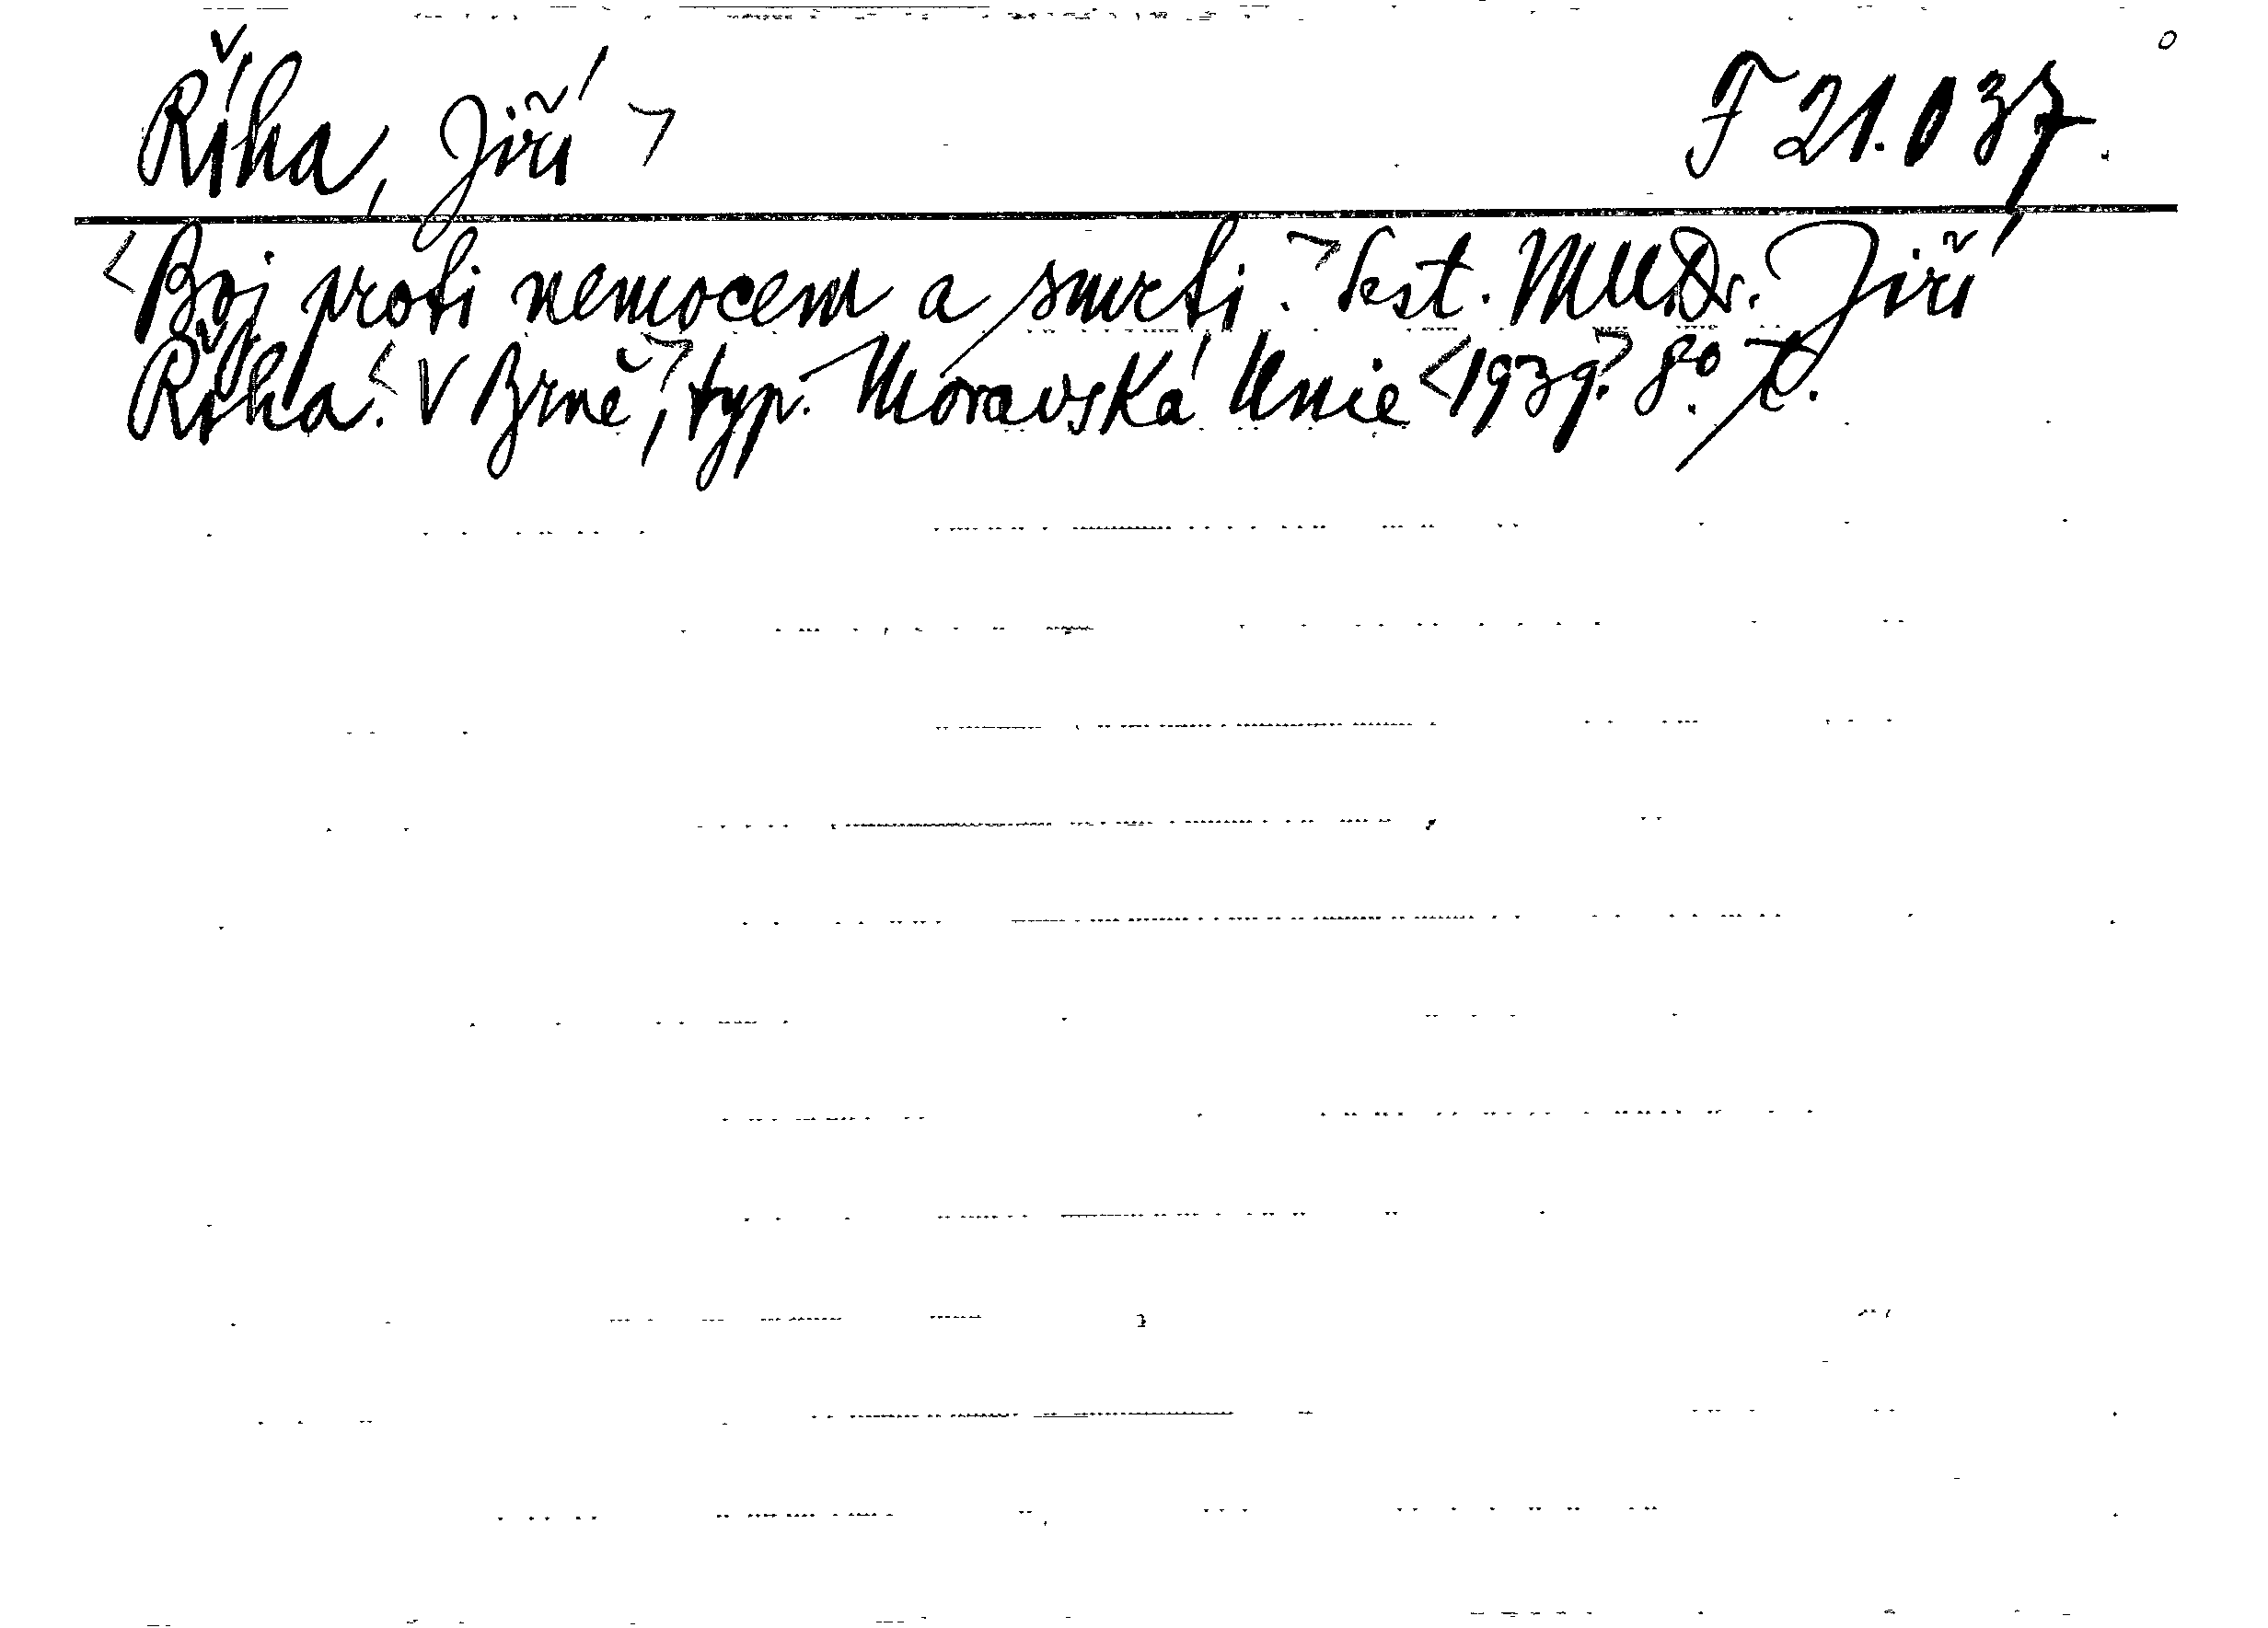 Říha, Jiří > F 21.037.
<Boj proti nemocem a smrti.> Sest. MUDr. Jiří
Říha. <V Brně,> typ. Moravská Unie <1939.> 8°.